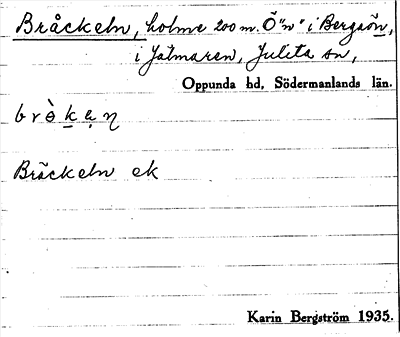 Bråckeln, holme 200 m. Ö "n" i Bergsön,
i Jälmaren, Julita sn,
Oppunda hd, Södermanlands län.
bròkęŋ
Bräckeln ek
Karin Bergström 1935.